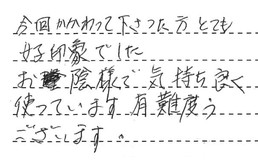 今回かかわって下さった方とても
好印象でした
お陰様で気持ち良く
使っています有難度う
ございます。